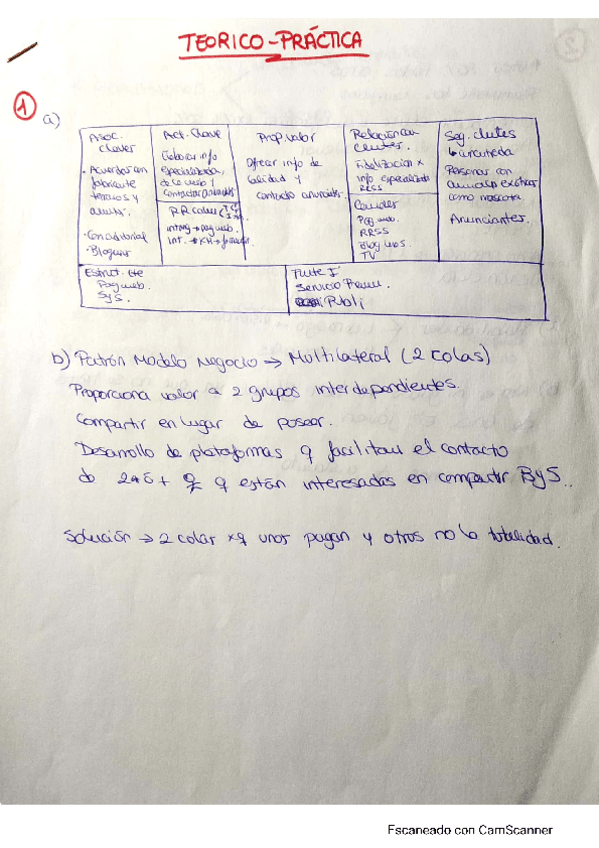 TEORICO-PRÁCTICA
1
a)
Asoc. claves
- Acuerdos con fabricante
terrarios y
- Consultorial
- Bloguers
Act. Clave
Elaborar info
especializada,
de la web y
contactar anunciantes
RR claves
Intang → pag web.
Int. → KH →
Prop. valor
Ofrecer info de
calidad y
contacto anunciantes.
Relación con
clientes.
Fidelización x
info especializada
RRSS
Canales
Pag web.
RRSS
Blog
TV
Seg. cltes
Personas con
animales exóticos
como mascota
Anunciantes.
Estruct. cte
Pag web.
Sys.
Fuente I
Servicio Prem.
Publi
b) Patrón Modelo Negocio → Multilateral (2 colas)
Proporciona valor a 2 grupos interdependientes.
Compartir en lugar de poseer.
Desarrollo de plataformas q facilitan el contacto
do 2 aó + q están interesadas en compartir B y S..
Solución → 2 colas xq unos pagan y otros no la totalidad.
Escaneado con CamScanner